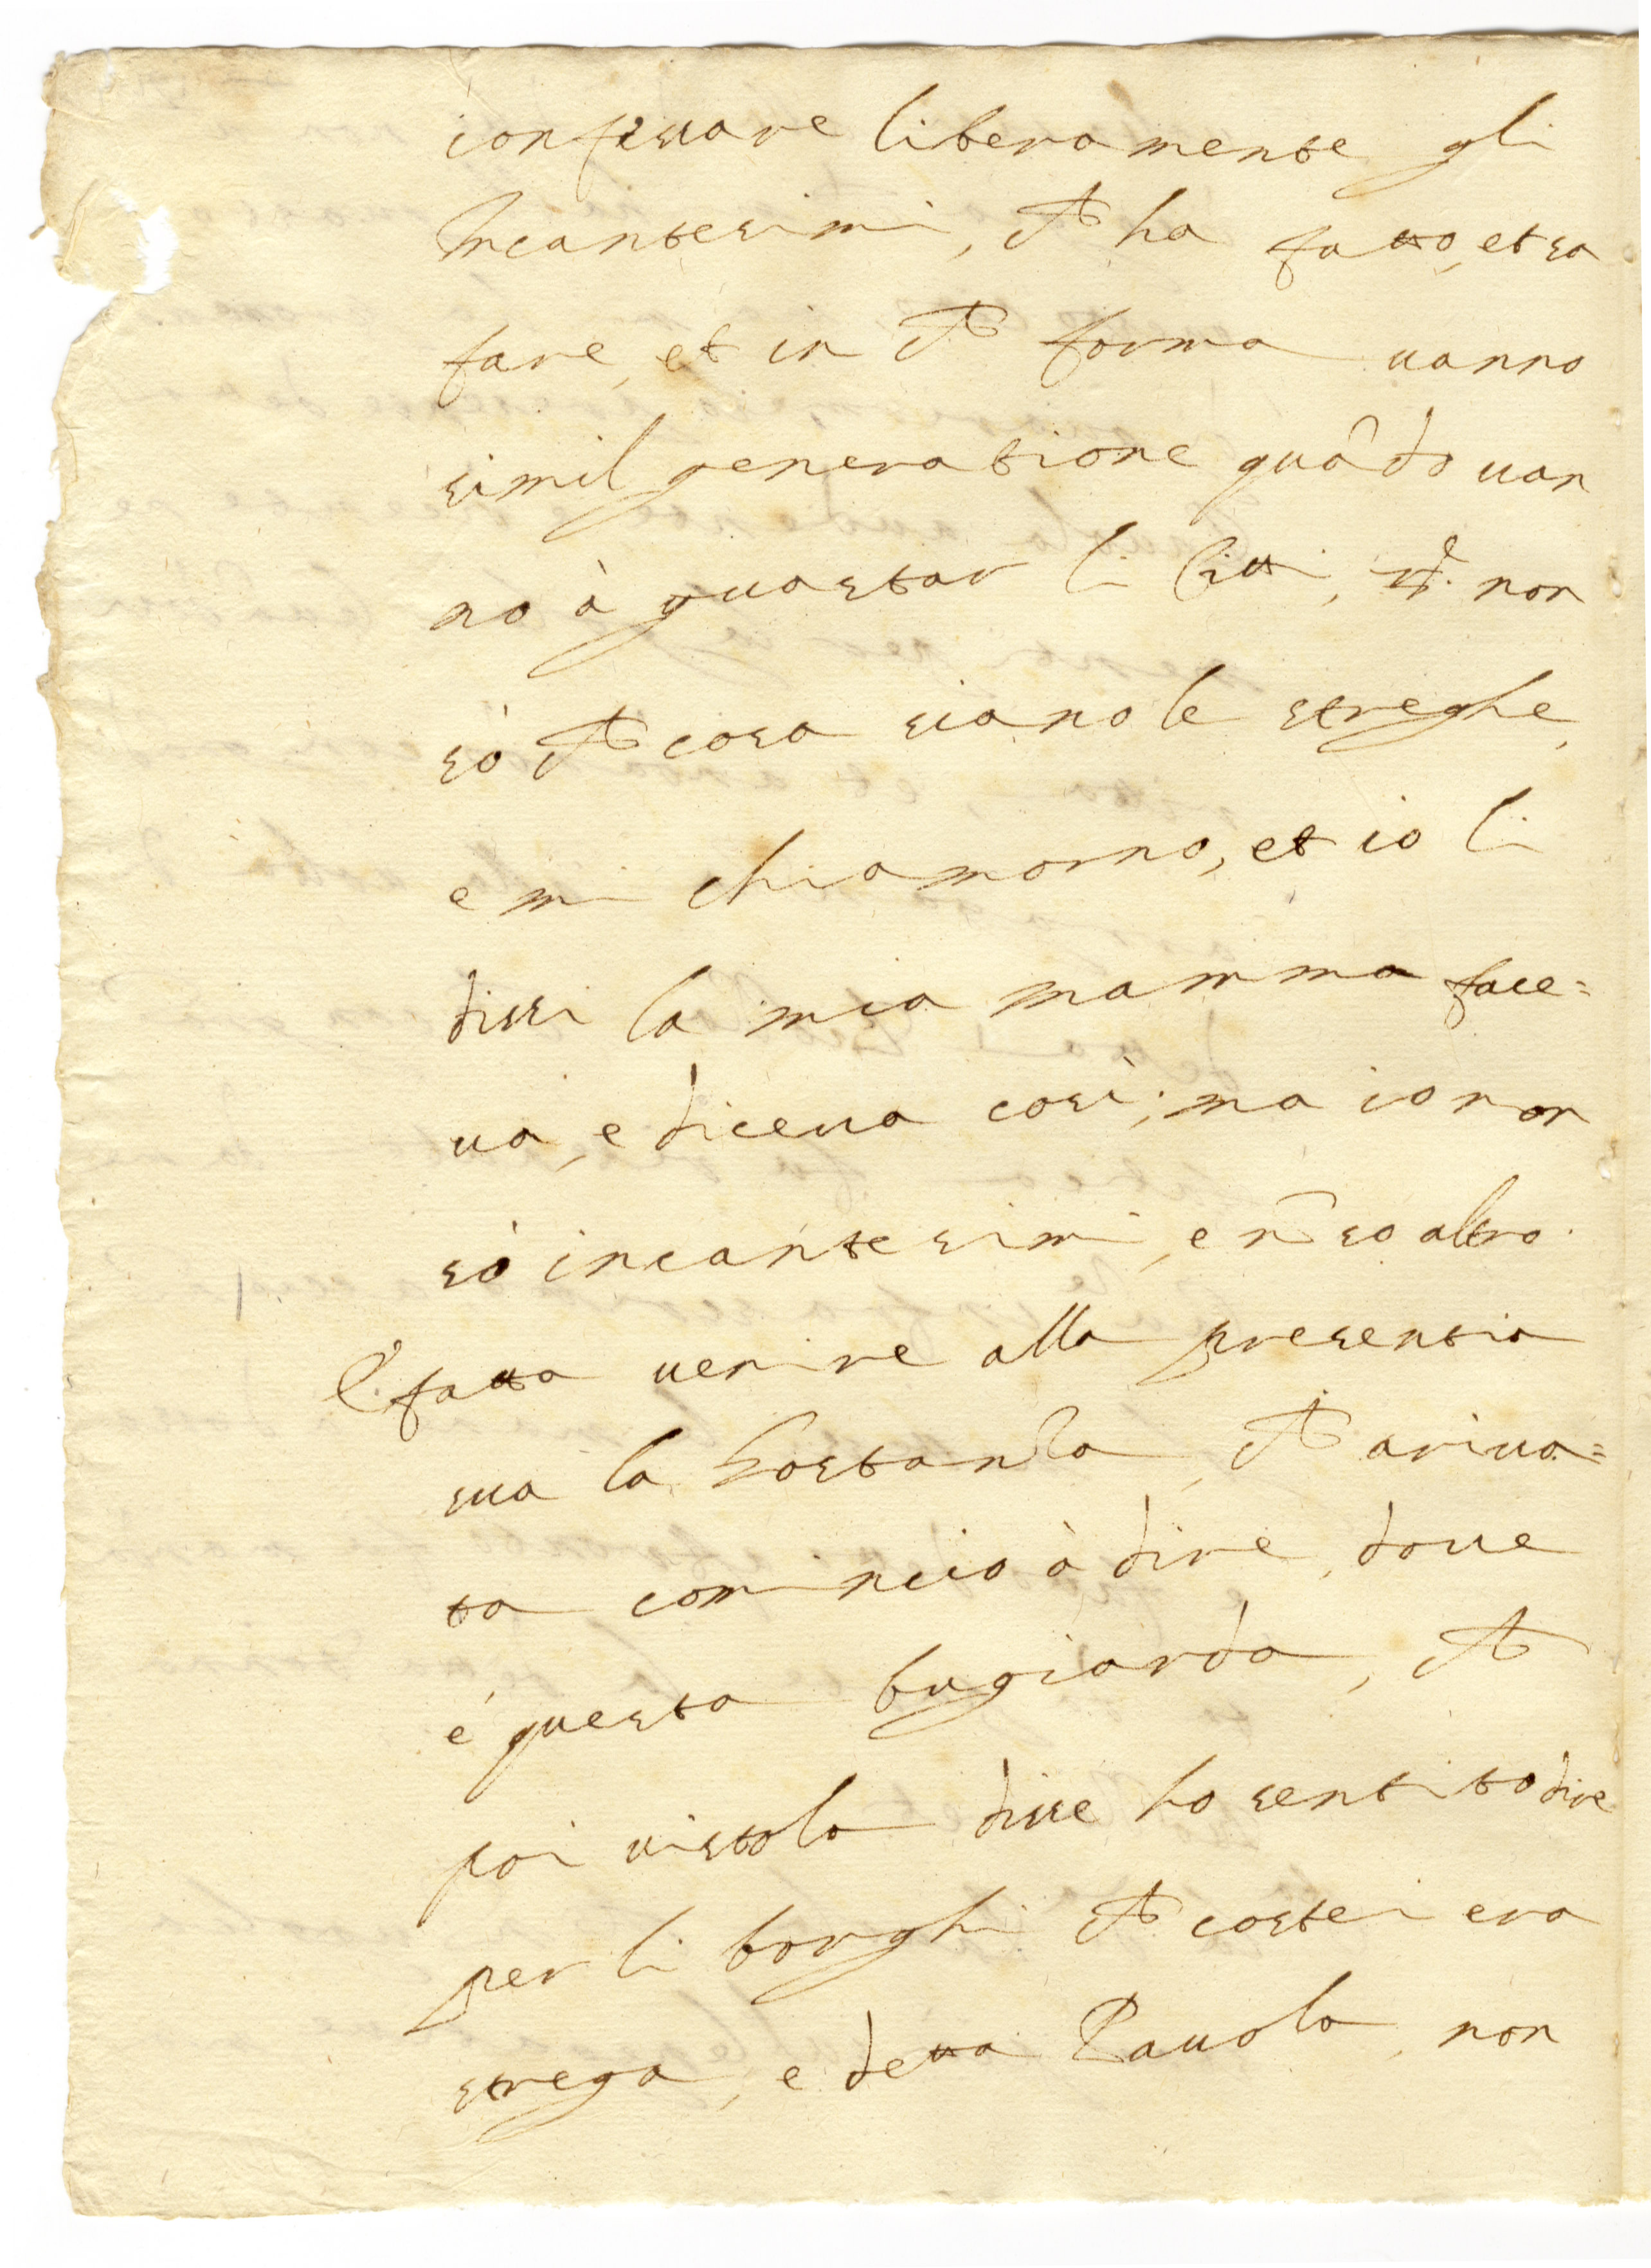 confessare liberamente gli
Incantesimi, che ha fatto, et sa
fare, et in che forma uanno
simil generatione quãdo uan
no à guastar li Citti, Rt. non
sò che cosa siano le streghe,
e mi chiamorno, et io li
dissi la mia mamma face=
ua, e diceua così; ma io non
sò incantesimi, e nõ so altro.
E fatta uenire alla presentia
sua la Gostanza, che ariua=
ta cominciò à dire, doue
è questa bugiarda, che
poi uistola disse ho sentito dire
per li borghi che costei era
strega, e detta Pauola, non